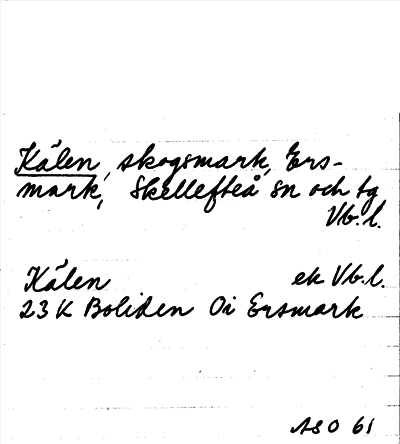 Kälen, skogsmark, Ers-
mark, Skellefteå sn och tg
Vb.l.
Kälen ek Vb.l.
23 K Boliden 0i Ersmark
ASO 61